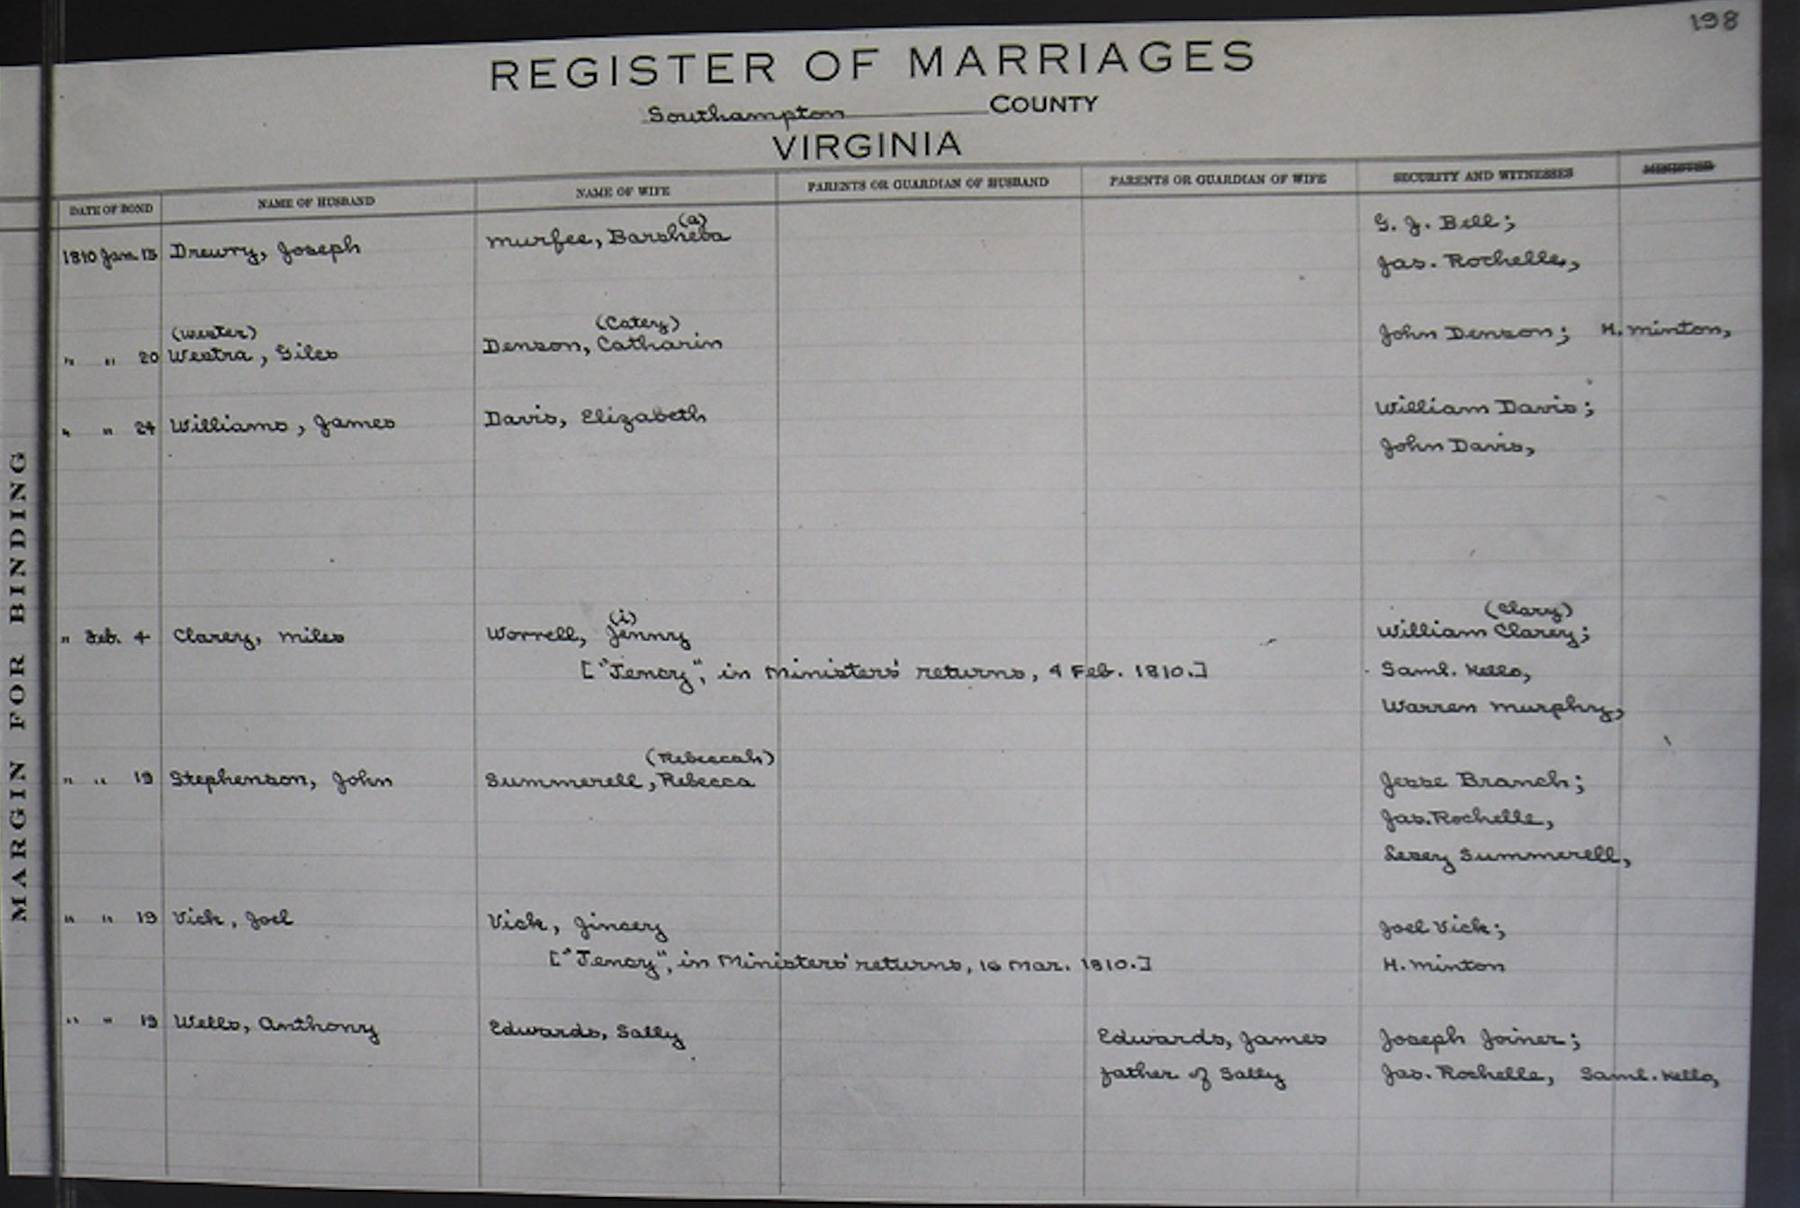 198
REGISTER OF MARRIAGES
Southampton COUNTY
VIRGINIA
DATE OF BOND NAME OF HUSBAND NAME OF WIFE PARENTS OR GUARDIAN OF HUSBAND PARENTS OR GUARDIAN OF WIFE SECURITY AND WITNESSES MINISTER
(a)
1810 Jan. 13 Drewry, Joseph Murfee, Barsheba G. J. Bell;
Jas. Rochelle,
(Wester) (Catey)
" " 20 Westra, Giles Denson, Catharin John Denson; H. Minton,
" " 24 Williams, James Davis, Elizabeth William Davis;
John Davis,
(i) (Clary)
" Feb. 4 Clarey, Miles Worrell, Jenny William Clarey;
["Jency", in Ministers' returns, 4 Feb. 1810.] Saml. Kello,
Warren Murphry,
(Rebeccah)
" " 19 Stephenson, John Summerell, Rebecca Jesse Branch;
Jas. Rochelle,
Summerell,
" " 19 Vick, Joel Vick, Jincey Joel Vick;
["Jency", in Ministers' returns, 16 Mar. 1810.] H. Minton
" " 19 Wells, Anthony Edwards, Sally Edwards, James Joseph Joiner;
father of Sally Jas. Rochelle, Saml. Kello,
MARGIN FOR BINDING